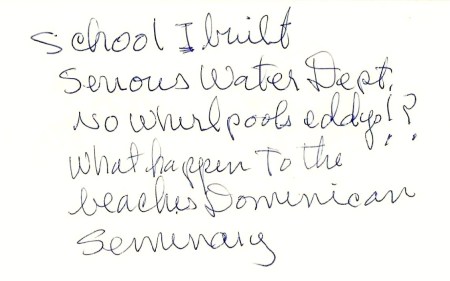 School I built
Serious Water Dept.
No whirlpools eddys!?
What happen To the
beaches Dominican
Seminary